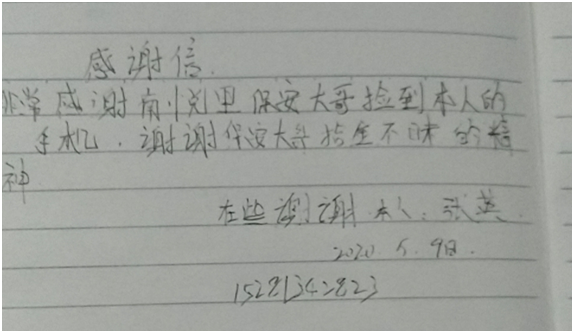 感谢信.
非常感谢南悦里保安大哥捡到本人的
手机.谢谢保安大哥拾金不昧的精
神
在些谢谢 本人:张英.
2020.5.9日.